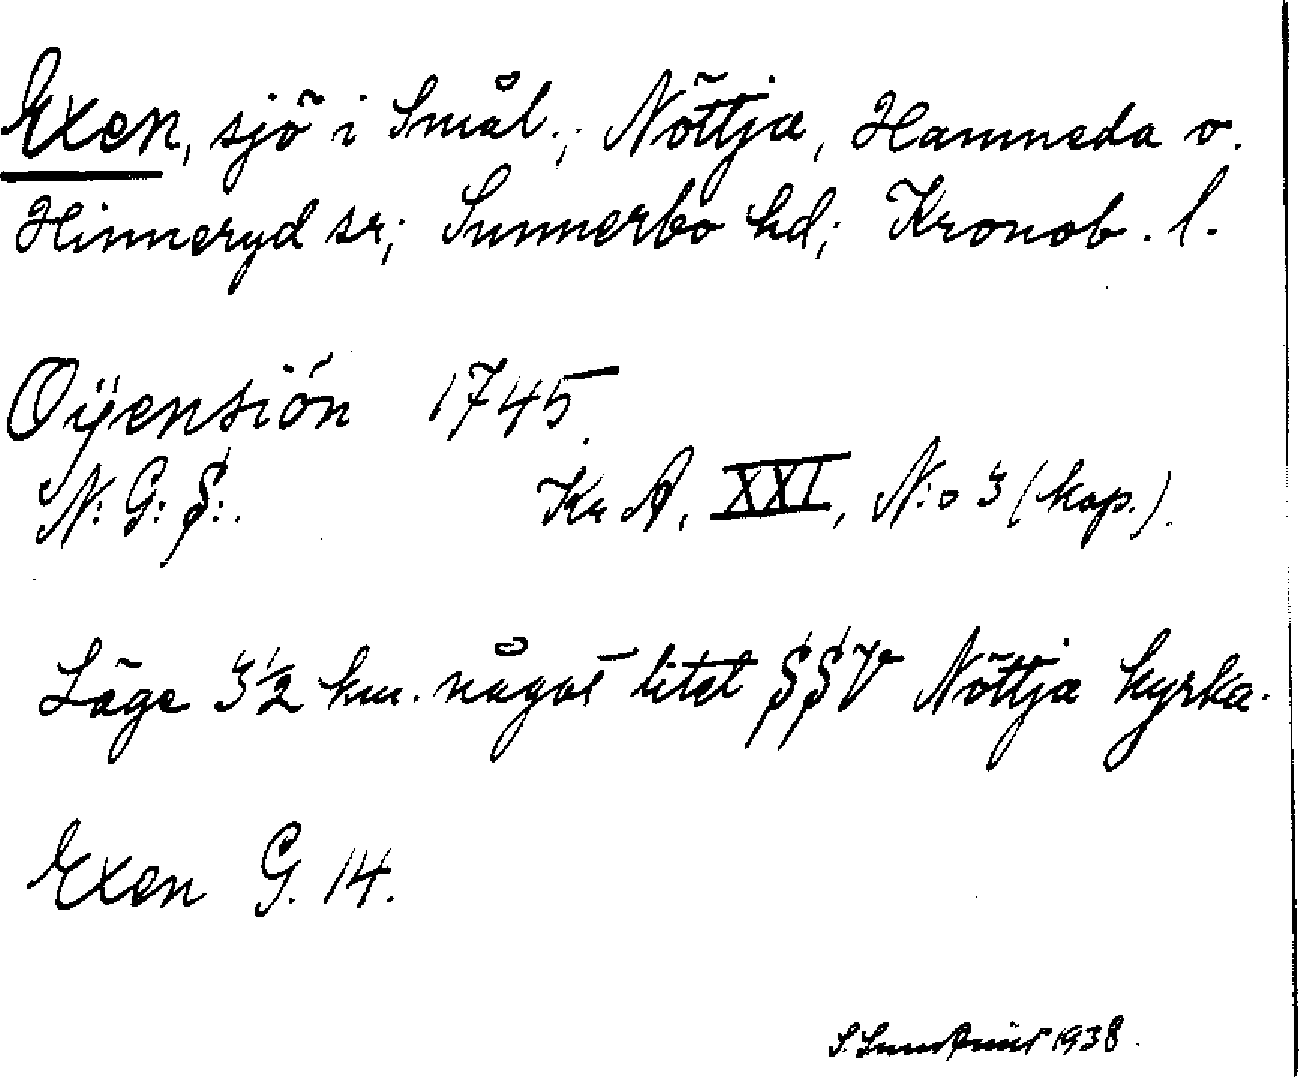 Exen, sjö i Smål.; Nöttja, Hamneda o.
Hinneryd sr; Sunnerbo hd; Kronob. l.
Oÿensión 1745.
N: G: S:.
Kr A, XXI, N:o 3 (kop.).
Läge 3 1/2 km. något litet SSV Nöttja kyrka.
Exen G. 14.
S. Sundqvist 1938.